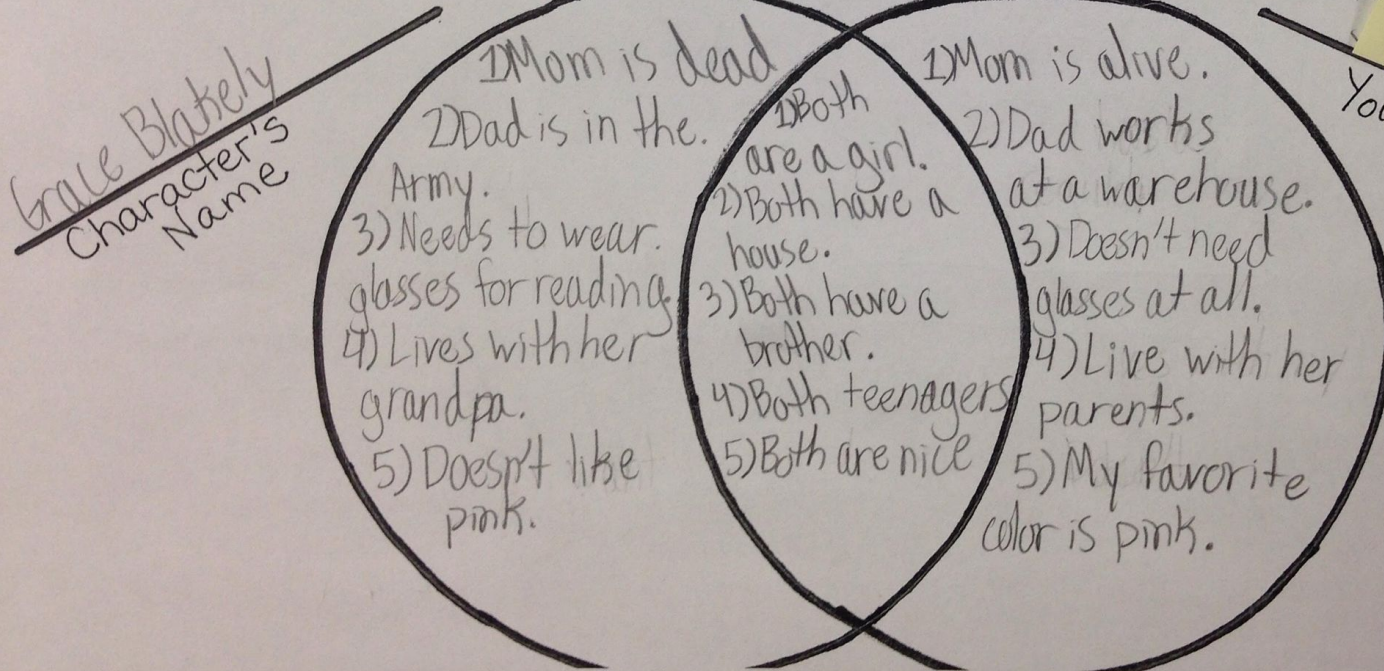 Grace Blakely
Character's
Name
1)Mom is dead
2)Dad is in the.
Army.
3)Needs to wear.
glasses for reading.
4)Lives with her
grandpa.
5)Doesn't like
pink.
1)Both
are a girl.
2)Both have a
house.
3)Both have a
brother.
4)Both teenagers
5)Both are nice
1)Mom is alive.
2)Dad works
at a warehouse.
3)Doesn't need
glasses at all.
4)Live with her
parents.
5)My favorite
color is pink.